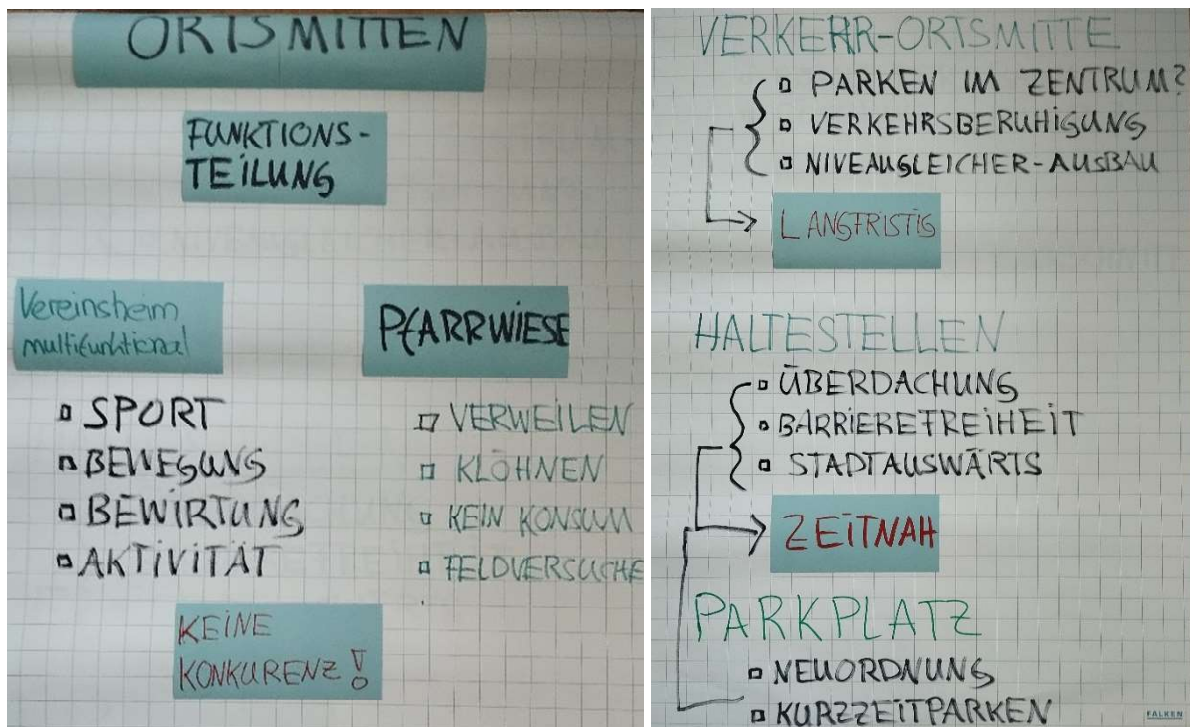 ORTSMITTEN
FUNKTIONS-
TEILUNG
Vereinsheim
multifunktional
SPORT
BEWEGUNG
BEWIRTUNG
AKTIVITÄT
PFARRWIESE
VERWEILEN
KLÖHNEN
KEIN KONSUM
FELDVERSUCHE
KEINE
KONKURENZ!
VERKEHR-ORTSMITTE
PARKEN IM ZENTRUM?
VERKEHRSBERUHIGUNG
NIVEAUGLEICHER-AUSBAU
LANGFRISTIG
HALTESTELLEN
ÜBERDACHUNG
BARRIEREFREIHEIT
STADTAUSWÄRTS
ZEITNAH
PARKPLATZ
NEUORDNUNG
KURZZEITPARKEN
FALKEN